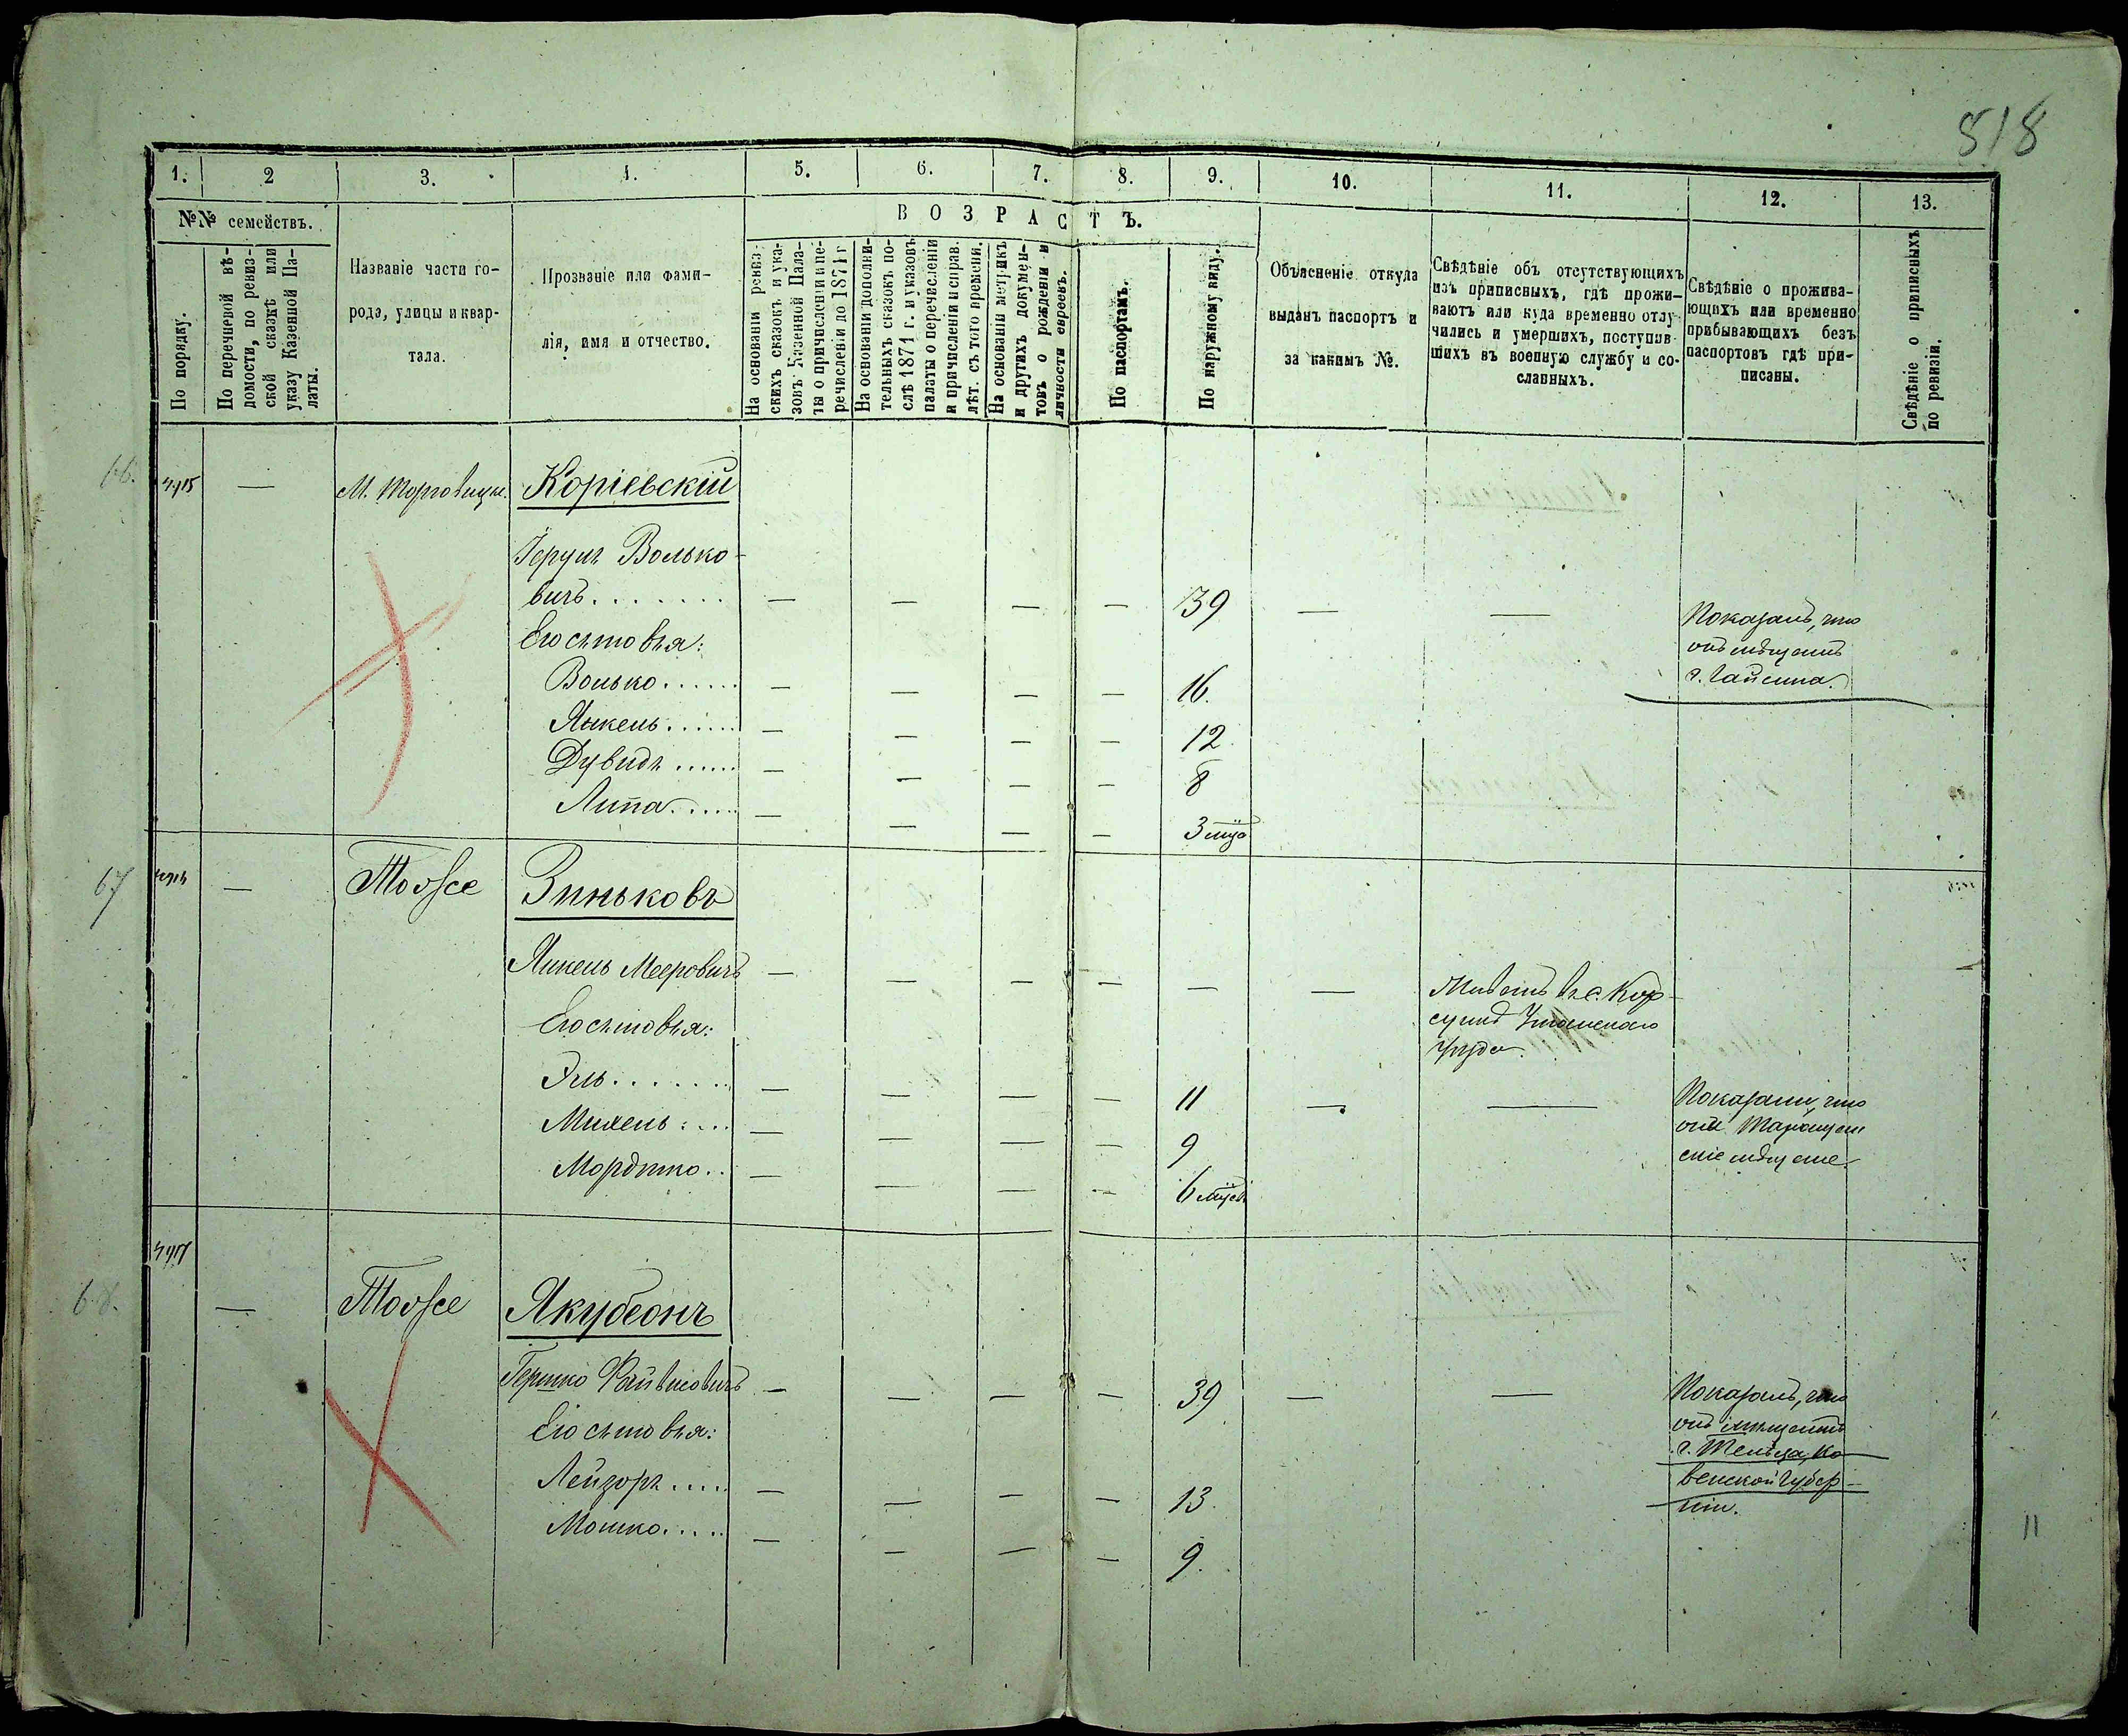 518
1. 2 3. 4. 5. 6. 7. 8. 9. 10. 11. 12. 13.
№№ семействъ.
По порядку.
По перечневой вѣ-
домости, по ревиз-
ской сказкѣ или
указу Казенной Па-
латы.
Названіе части го-
рода, улицы и квар-
тала.
Прозваніе или фами-
лія, имя и отчество.
ВОЗРАСТЪ.
На основаніи ревиз-
скихъ сказокъ и ука-
зовъ Казенной Пала-
ты о причисленіи и пе-
речисленіи до 1871 г
На основаніи дополни-
тельныхъ сказокъ по-
слѣ 1871 г. и указовъ
палаты о перечисленіи
и причисленіи и справ.
лѣт. съ того времени.
На основаніи метрикъ
и другихъ докумен-
товъ о рожденіи и
личности евреевъ.
По паспортамъ.
По наружному виду.
Объясненіе откуда
выданъ паспортъ и
за какимъ №.
Свѣдѣніе объ отсутствующихъ
изъ приписныхъ, гдѣ прожи-
ваютъ или куда временно отлу-
чились и умершихъ, поступив-
шихъ въ военную службу и со-
сланныхъ.
Свѣдѣніе о прожива-
ющихъ или временно
прибывающихъ безъ
паспортовъ гдѣ при-
писаны.
Свѣдѣніе о приписныхъ
по ревизіи.
66. — М. Торговица. Коріевскій
Волько-
вичъ . . . . . . . — — — — 39 — — Показалъ, что
онъ мѣщанинъ
г. Гайсина.
Его сыновья:
Волько . . . . . . — — — — 16.
Янкель . . . . . . — — — — 12.
Дувидъ . . . . . . — — — — 8
Липа . . . . . — — — — 3
67 — Тоже Зиньковъ
Янкель Мееровичъ — — — — — Живетъ въ с. Кор-
сункѣ Уманскаго
уѣзда.
Его сыновья:
Эль . . . . . . . — — — — 11 — — Показали, что
они Таращан
скіе мѣщане.
Михель . . . . — — — — 9
Мордко . . — — — — 6
68. — Тоже Якубсонъ
Гершко Файвисовичъ — — — — 39 — — Показалъ, что
онъ мѣщанинъ
г. Тельша, Ко-
венской губер-
ніи.
Его сыновья:
Лейзоръ . . . . . — — — — 13.
Мошко . . . . . — — — — 9.
11